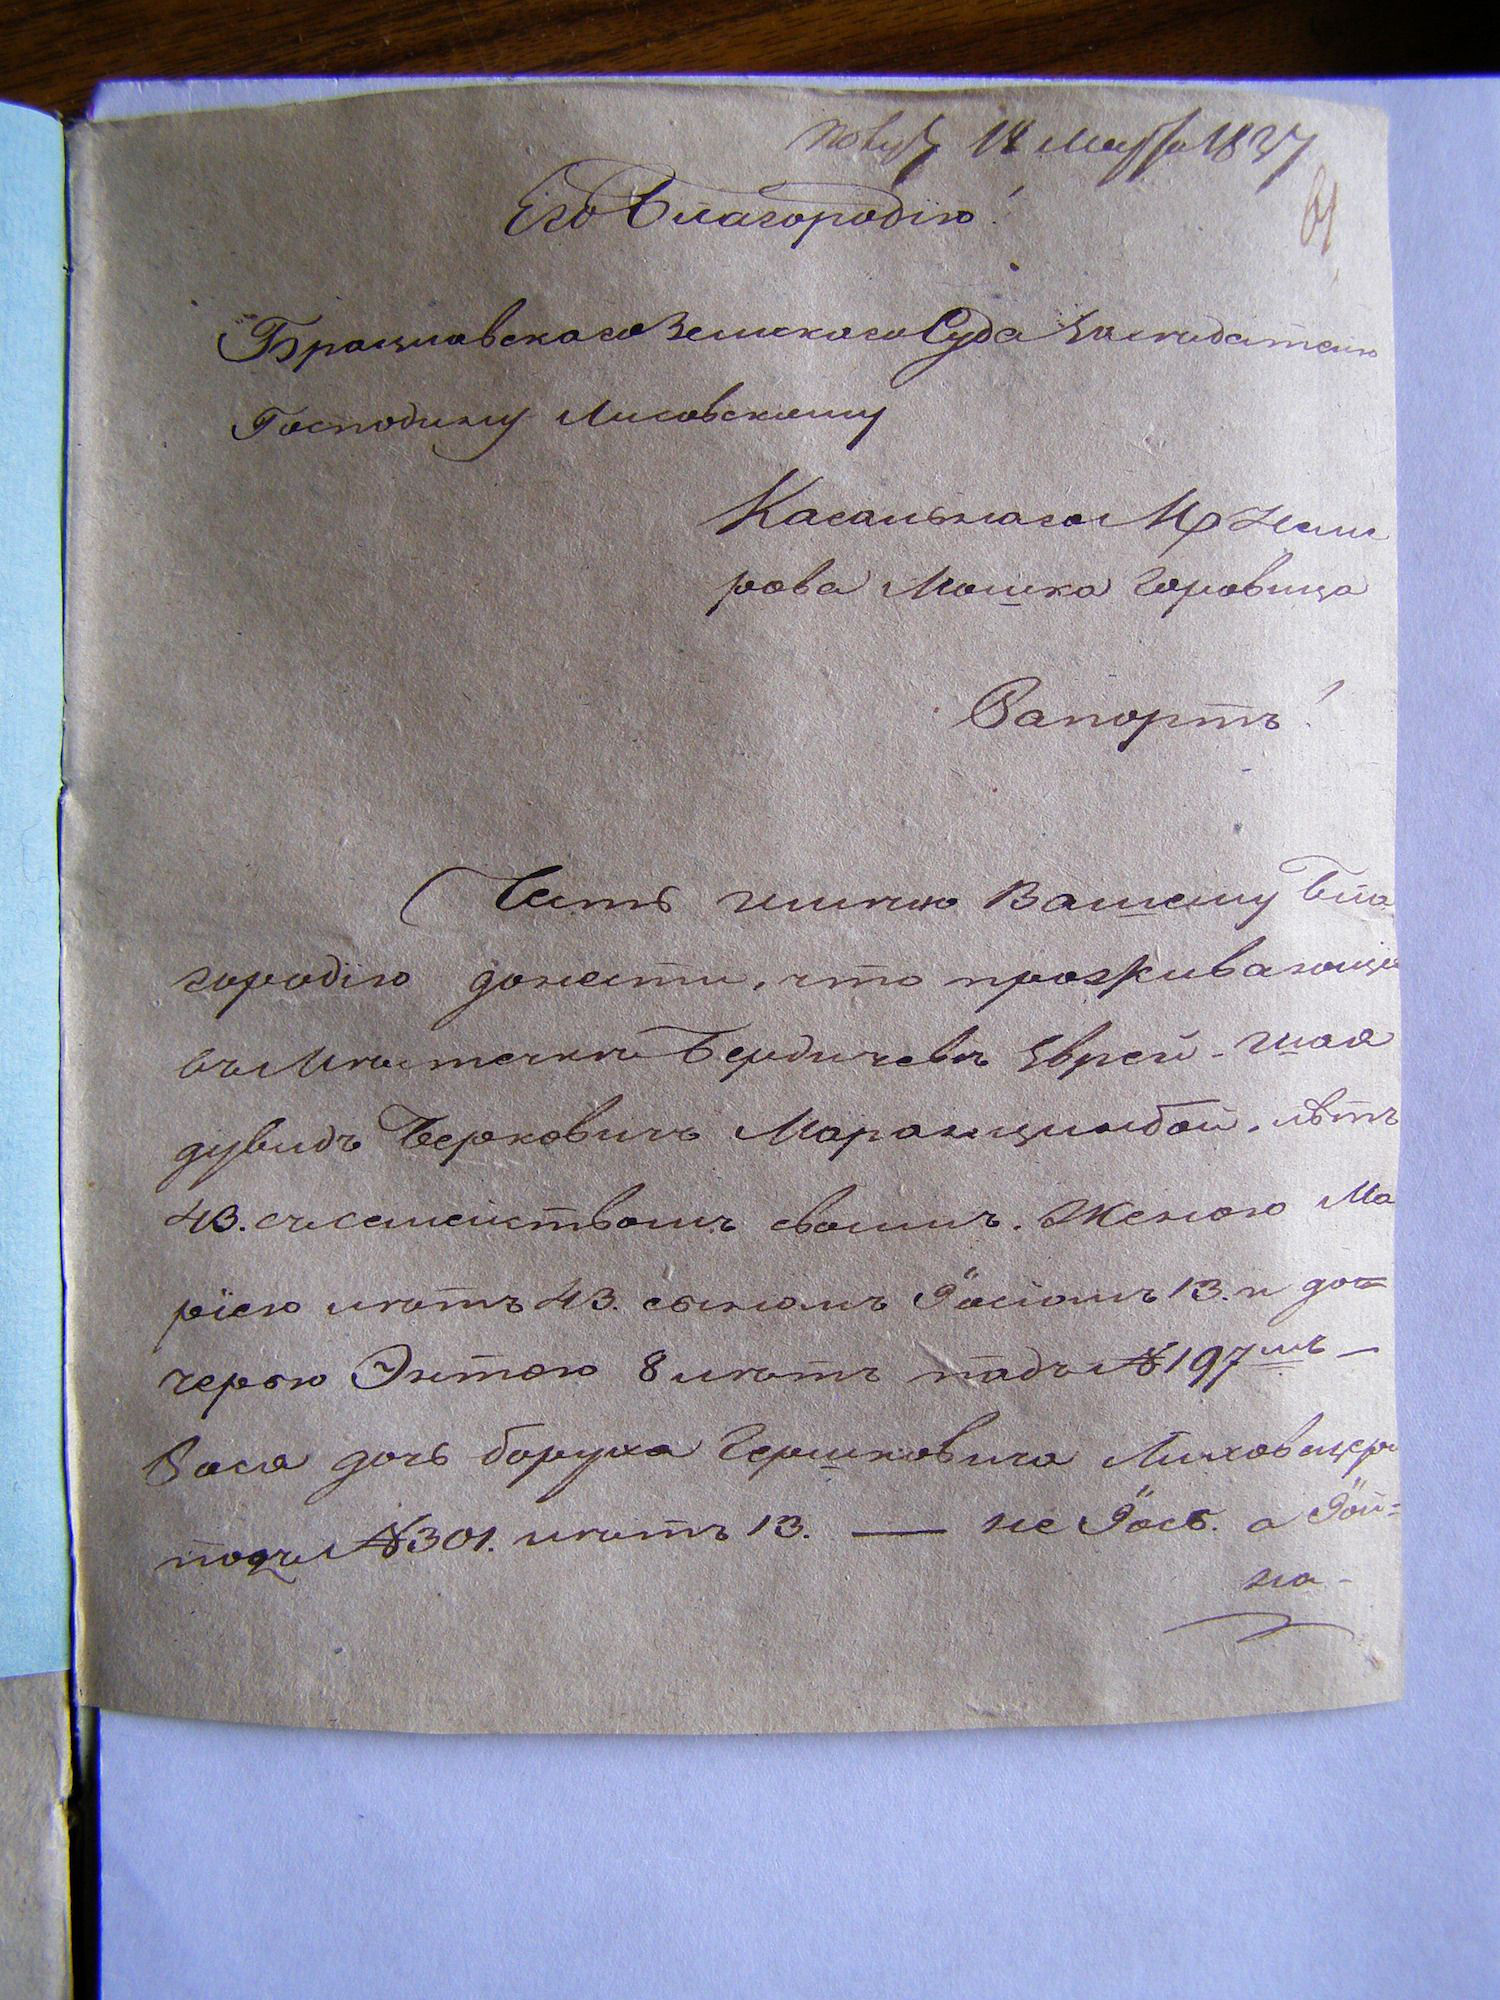 Получ 18 Марта 1837
Его Благородію!
61
Брацлавскаго Земскаго Суда Засѣдателю
Господину Лисовскому
Касальнаго М. Неми
рова Мошка Горовица
Рапортъ!
Честь имѣю Вашему Бла
городію донести, что проживающій
въ Мѣстечкѣ Бердичевѣ Еврей Шая
дувидъ Берковичъ лѣтъ
43. съ семействомъ своимъ. Женою Ма
ріею лѣтъ 43. сыномъ Іосіомъ 13. и доч=
черою Энтою 8 лѣтъ подъ № 197мъ —
Вася дочь боруха Гершковича
подъ № 301. лѣтъ 13. — не Іось. а Іой=
на -